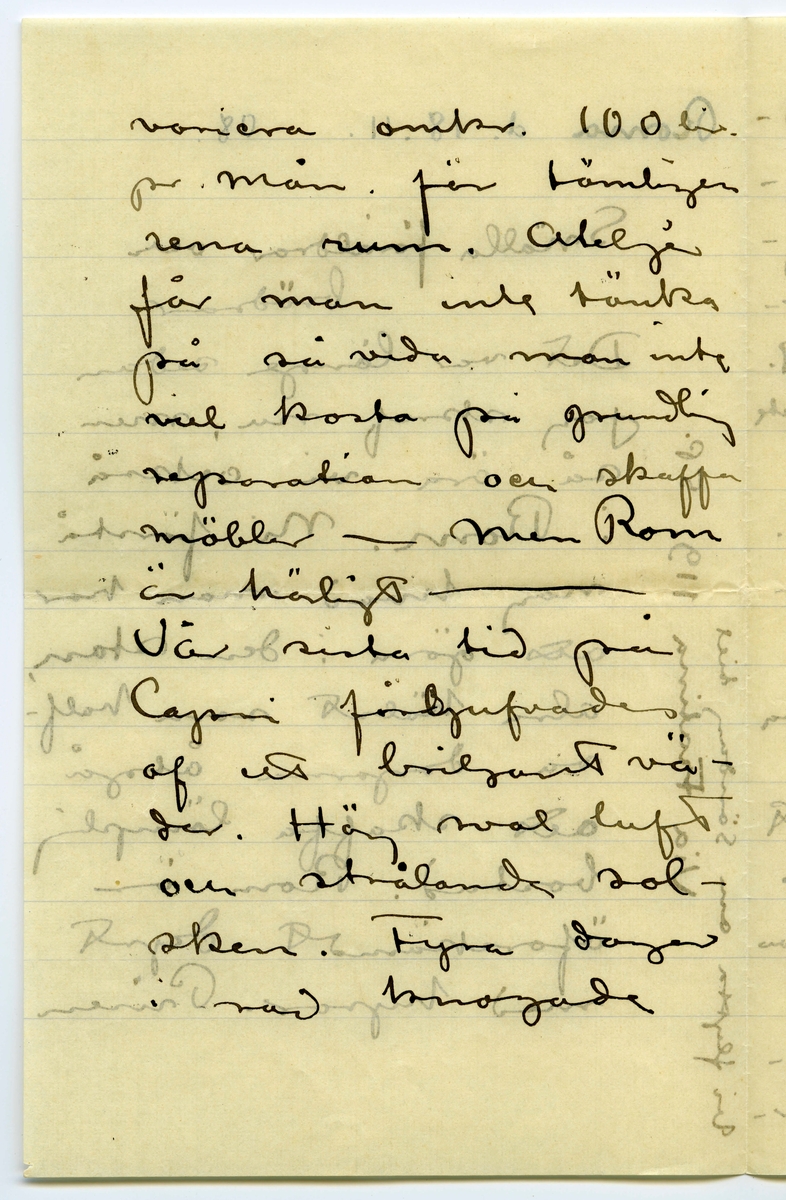 variera omkr. 100 lir.
pr. mån. för tämligen
rena rum. Ateljé
får man inte tänka
på så vida man inte
vill kosta på grundlig
reparation och skaffa
möbler — men Rom
är härligt —
Vår sista tid på
Capri förljufvades
af ett briljant vä-
der. Hög sval luft
och strålande sol-
sken. Fyra dagar
i rad knogade